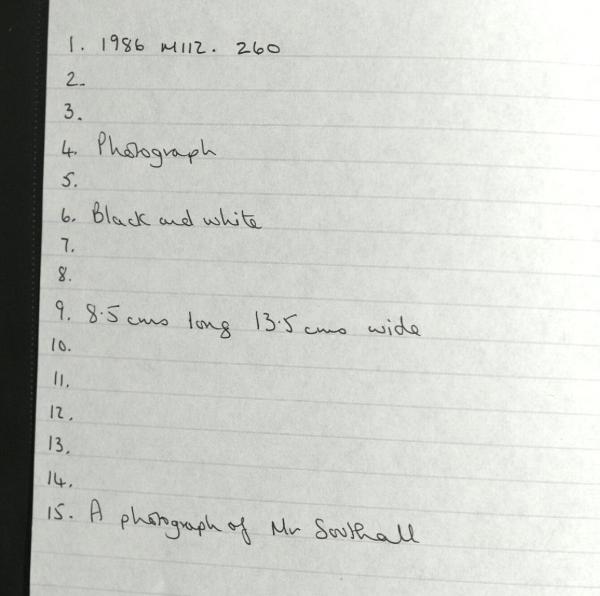 1. 1986 M112. 260
2.
3.
4. Photograph
5.
6. Black and white
7.
8.
9. 8.5 cms long 13.5 cms wide
10.
11.
12.
13.
14.
15. A photograph of Mr Southall